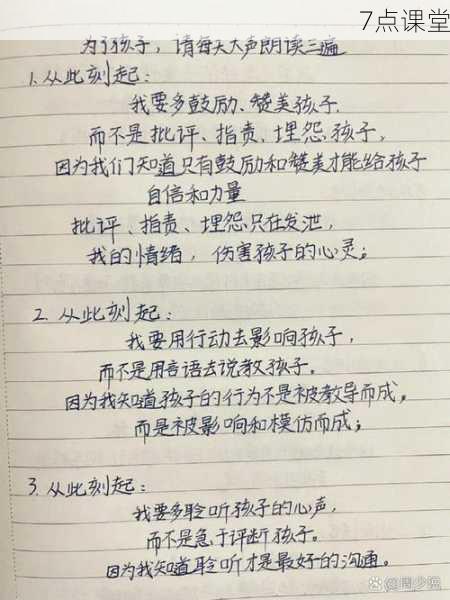 7点课堂
为了孩子，请每天大声朗读三遍
1. 从此刻起：
我要多鼓励、赞美孩子.
而不是批评、指责、埋怨孩子，
因为我们知道只有鼓励和赞美才能给孩子
自信和力量
批评、指责、埋怨只在发泄，
我的情绪，伤害孩子的心灵；
2. 从此刻起：
我要用行动去影响孩子，
而不是用言语去说教孩子。
因为我知道孩子的行为不是被教导而成，
而是被影响和模仿而成；
3. 从此刻起：
我要多聆听孩子的心声，
而不是急于评断孩子。
因为我知道聆听才是最好的沟通。